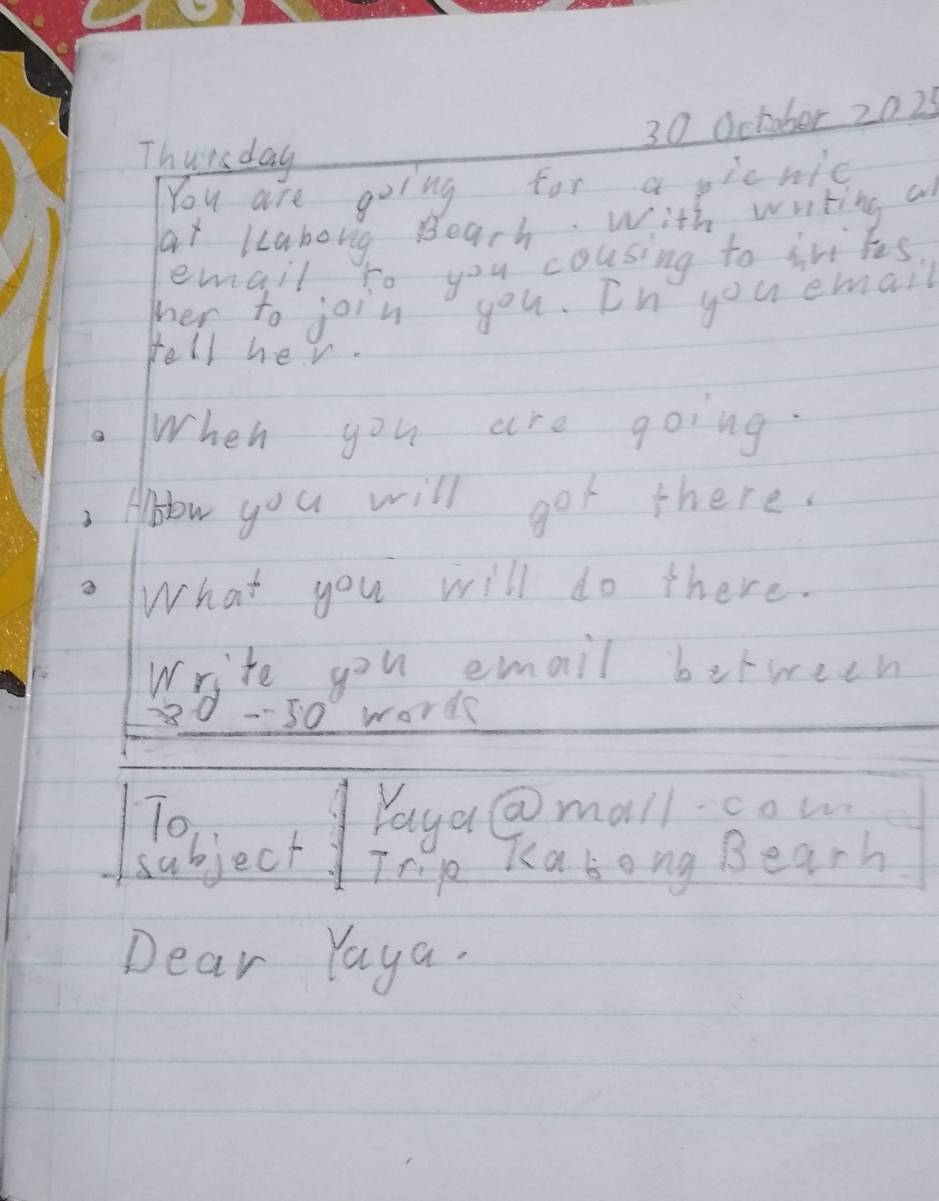 30 October 2025
Thursday
You are going for a picnic
at Kabong Bearh. With writing
email to you cousing to
her to join you. In you email
tell her.
When you are going.
How you will got there.
What you will do there.
Write you email between
30 - 50 words
To Yaya@mall.com
subject Trip Kabong Bearh
Dear Yaya.